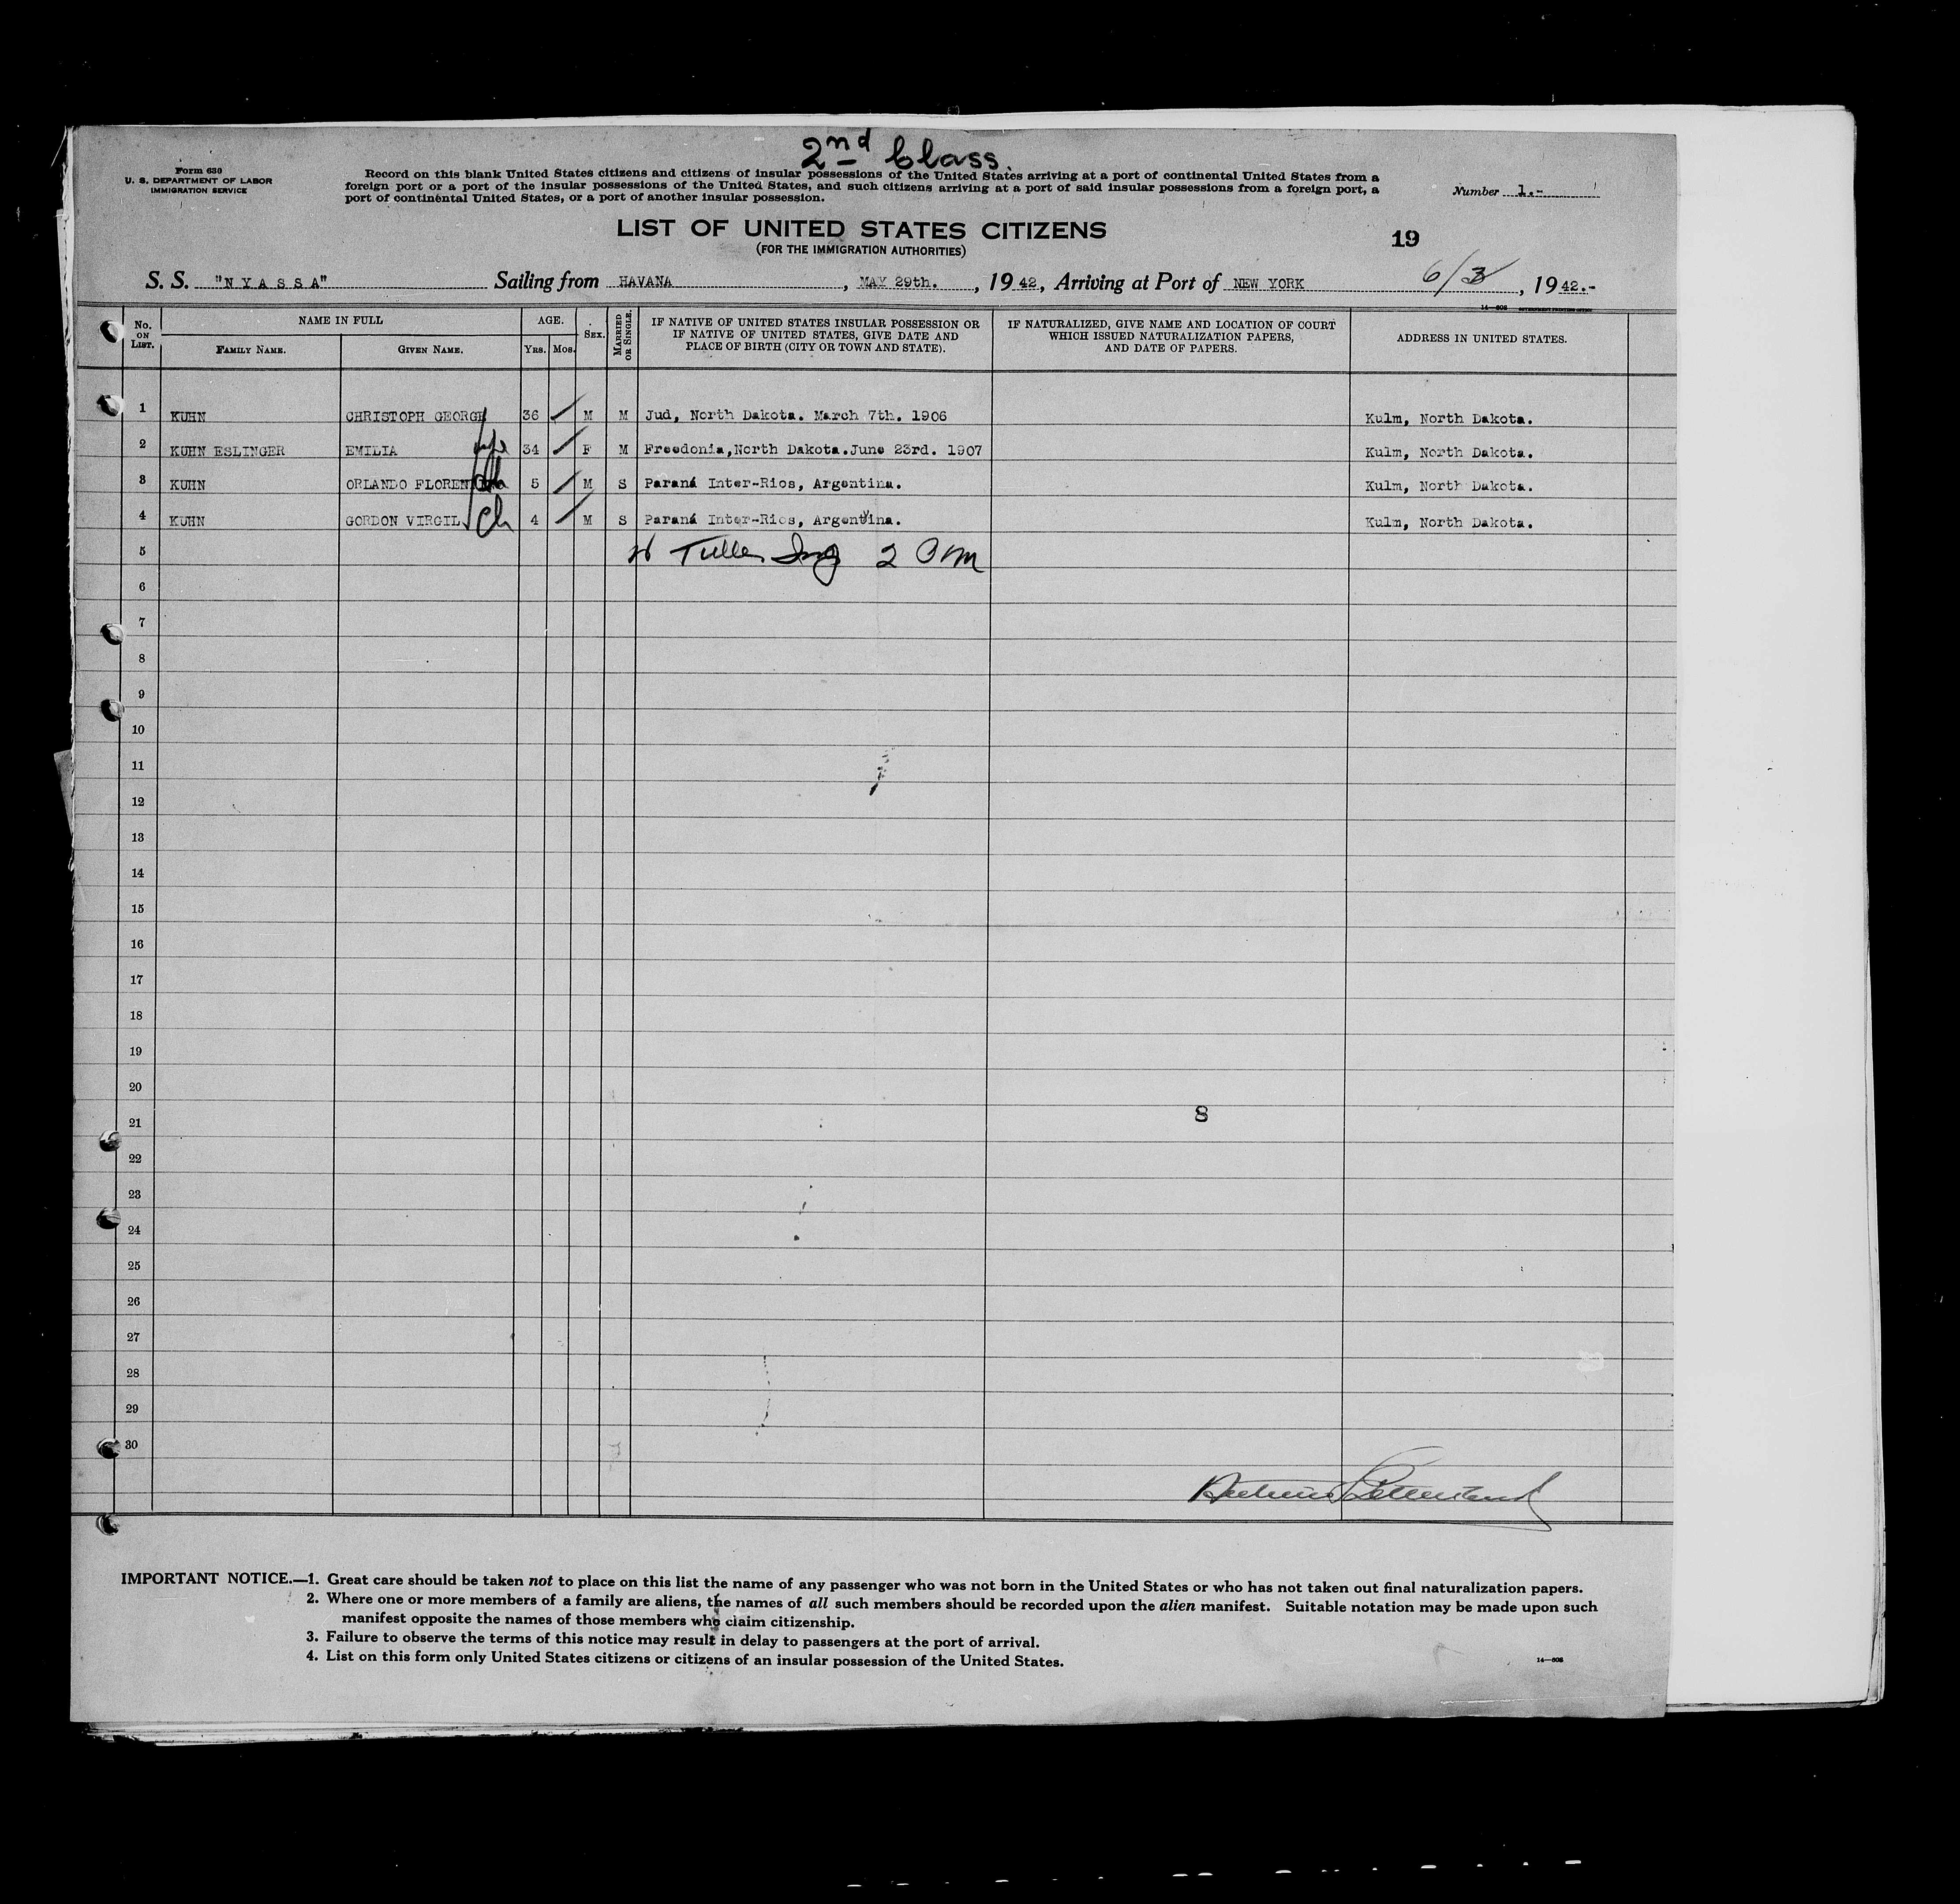 2nd Class.
Form 630
U. S. DEPARTMENT OF LABOR
IMMIGRATION SERVICE
Record on this blank United States citizens and citizens of insular possessions of the United States arriving at a port of continental United States from a
foreign port or a port of the insular possessions of the United States, and such citizens arriving at a port of said insular possessions from a foreign port, a
port of continental United States, or a port of another insular possession.
Number 1.-
LIST OF UNITED STATES CITIZENS
(FOR THE IMMIGRATION AUTHORITIES)
19
S. S. "NYASSA" Sailing from HAVANA, MAY 29th., 1942, Arriving at Port of NEW YORK 6/3, 1942.-
14—808 GOVERNMENT PRINTING OFFICE
No. ON LIST. NAME IN FULL AGE. SEX. MARRIED OR SINGLE. IF NATIVE OF UNITED STATES INSULAR POSSESSION OR IF NATIVE OF UNITED STATES, GIVE DATE AND PLACE OF BIRTH (CITY OR TOWN AND STATE). IF NATURALIZED, GIVE NAME AND LOCATION OF COURT WHICH ISSUED NATURALIZATION PAPERS, AND DATE OF PAPERS. ADDRESS IN UNITED STATES.
FAMILY NAME. GIVEN NAME. YRS. MOS.
1 KUHN CHRISTOPH GEORGE 36 M M Jud, North Dakota. March 7th. 1906 Kulm, North Dakota.
2 KUHN ESLINGER EMILIA wife 34 F M Freedonia,North Dakota.June 23rd. 1907 Kulm, North Dakota.
3 KUHN ORLANDO ch 5 M S Paraná Inter-Rios, Argentina. Kulm, North Dakota.
4 KUHN GORDON VIRGIL ch 4 M S Paraná Inter-Rios, Argentina. Kulm, North Dakota.
5
6
7
8
9
10
11
12
13
14
15
16
17
18
19
20
21 8
22
23
24
25
26
27
28
29
30
IMPORTANT NOTICE.—1. Great care should be taken not to place on this list the name of any passenger who was not born in the United States or who has not taken out final naturalization papers.
2. Where one or more members of a family are aliens, the names of all such members should be recorded upon the alien manifest. Suitable notation may be made upon such
manifest opposite the names of those members who claim citizenship.
3. Failure to observe the terms of this notice may result in delay to passengers at the port of arrival.
4. List on this form only United States citizens or citizens of an insular possession of the United States.
14—808